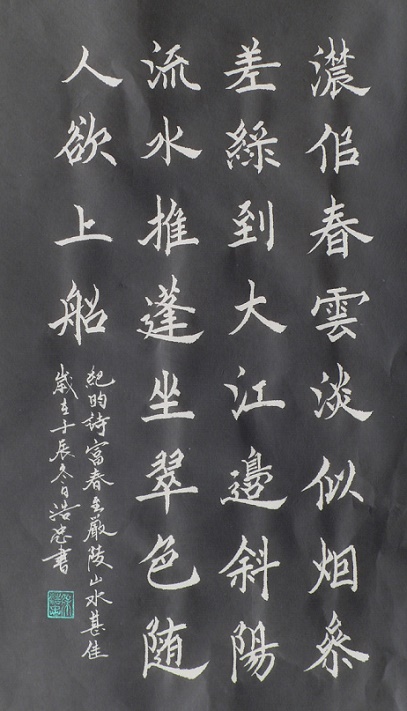 濃佀春雲淡似烟叅
差綠到大江邊斜陽
流水推蓬坐翠色随
人欲上船
紀昀詩富春至嚴陵山水甚佳
歲在壬辰冬日浩忠書